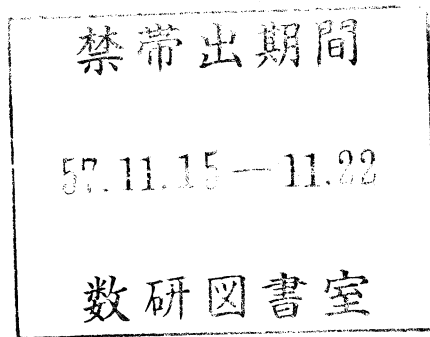 禁帯出期間
57.11.15—11.22
数研図書室